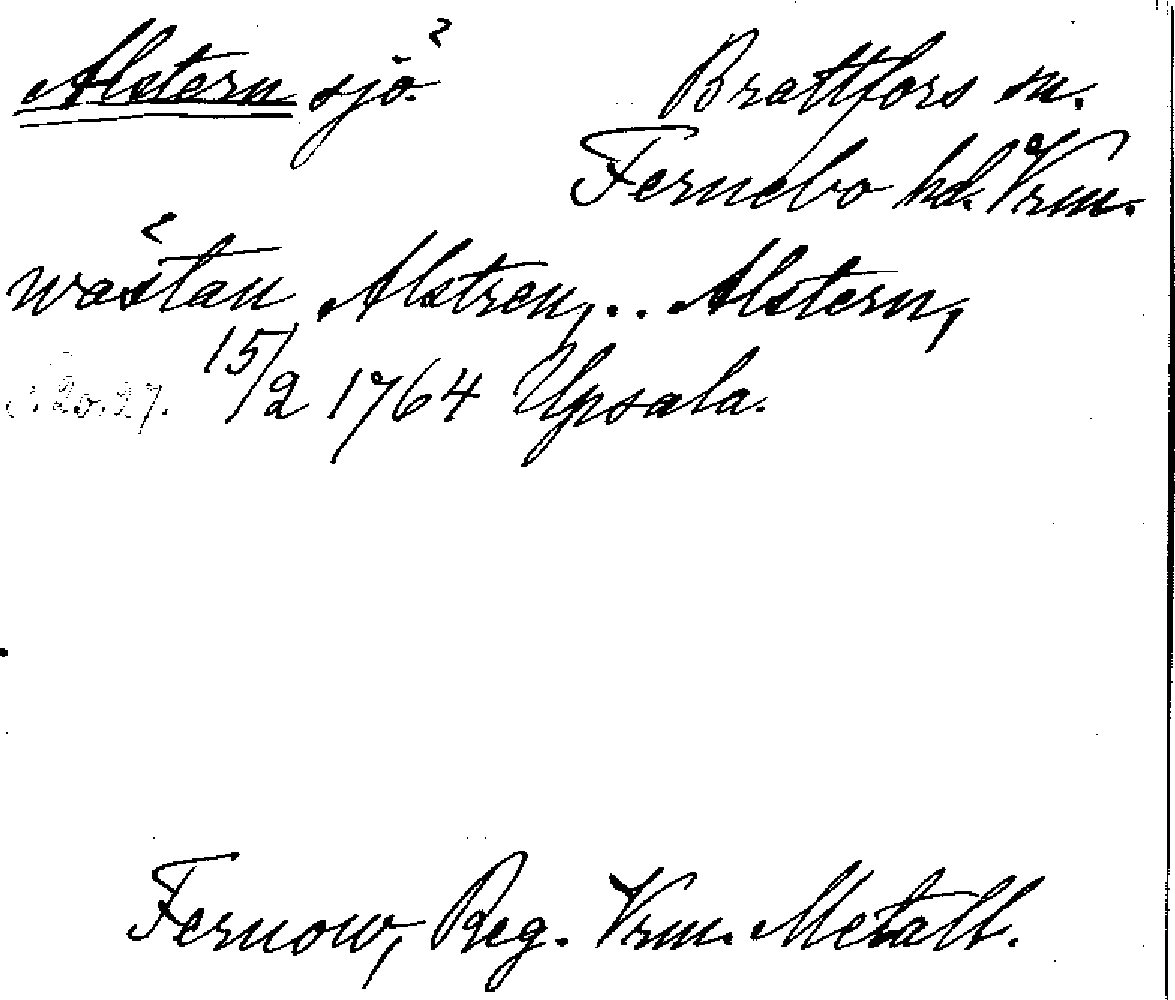 Alstern sjö? Brattfors sn.
Fernebo hd. Vrm.
wästan Alstren, .. Alstern,
s. 20. 27. 15/2 1764 Upsala.
Fernow, Reg. Vrm. Metall.